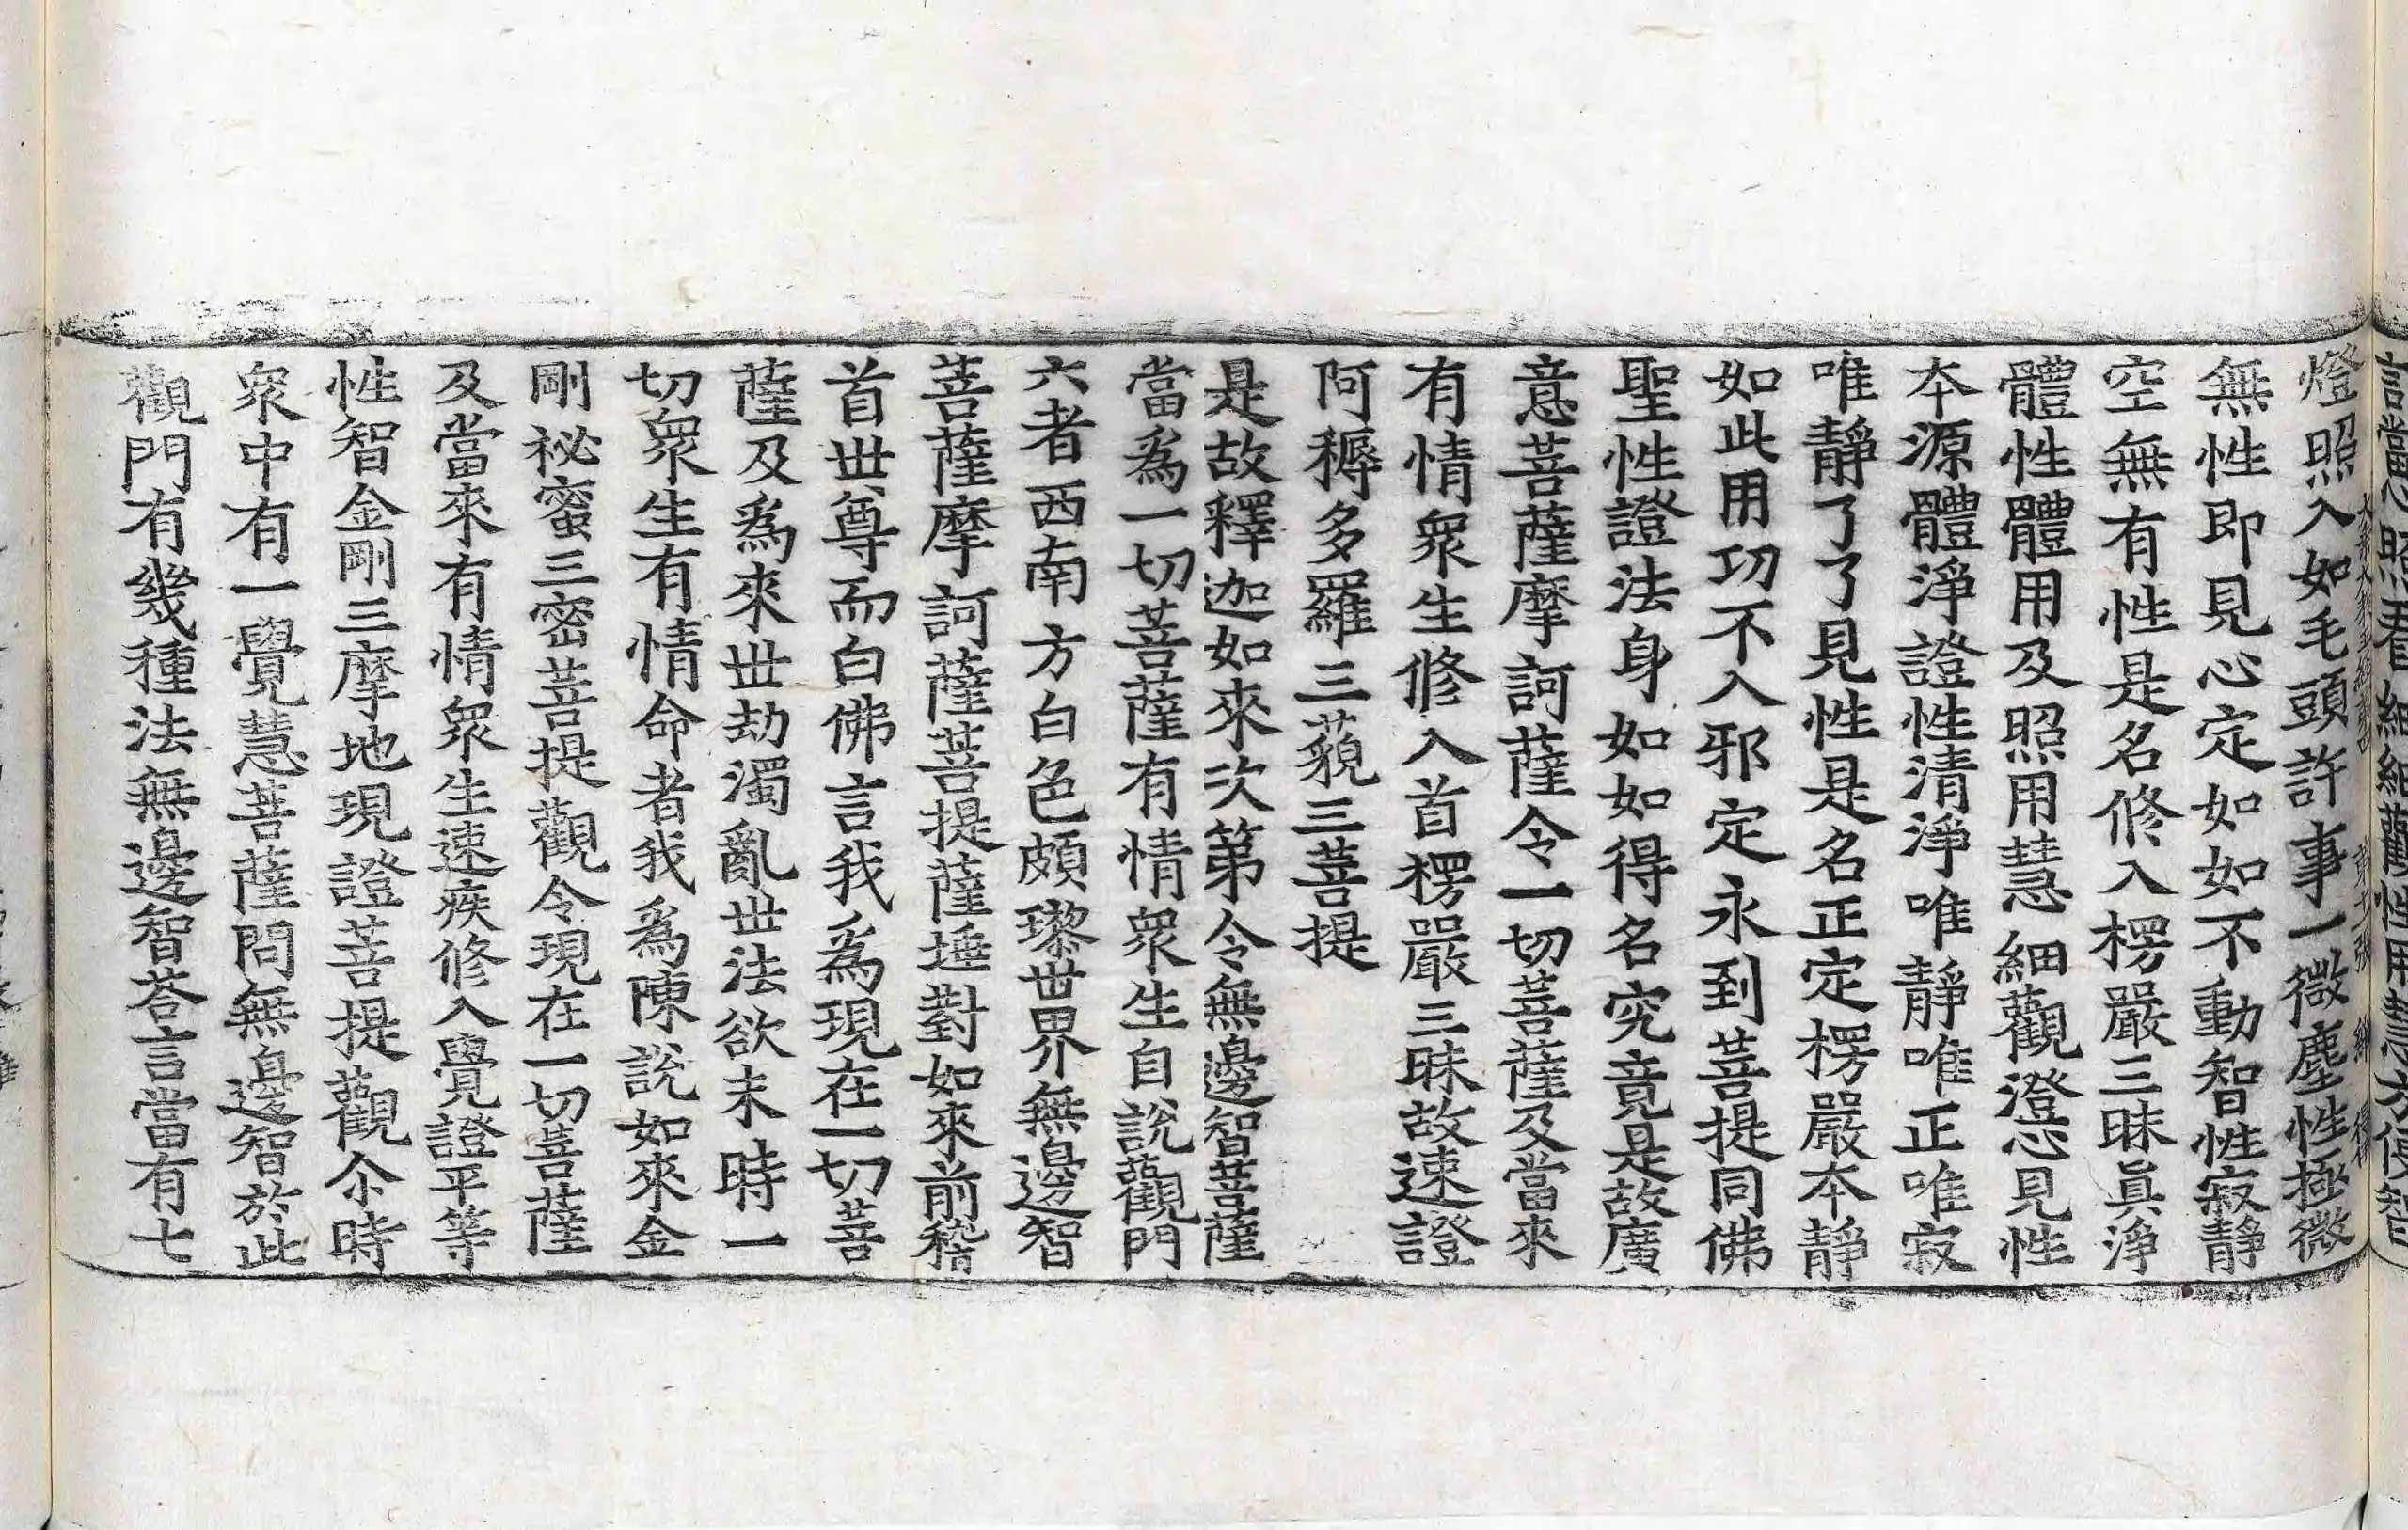 燈照入如毛頭許事一微塵性極微
無性即見心定如如不動智性寂靜
空無有性是名修入楞嚴三昧真淨
體性體用及照用慧細觀澄心見性
本源體淨證性清淨唯靜唯正唯寂
唯靜了了見性是名正定楞嚴本靜
如此用功不入邪定永到菩提同佛
聖性證法身如如得名究竟是故廣
意菩薩摩訶薩令一切菩薩及當來
有情衆生修入首楞嚴三昧故速證
阿耨多羅三藐三菩提
是故釋迦如來次第令無邊智菩薩
當爲一切菩薩有情衆生自說觀門
六者西南方白色頗瓈世界無邊智
菩薩摩訶薩菩提薩埵對如來前稽
首世尊而白佛言我爲現在一切菩
薩及爲來世劫濁亂世法欲末時一
切衆生有情命者我爲陳說如來金
剛祕蜜三密菩提觀令現在一切菩薩
及當來有情衆生速疾修入覺證平等
性智金剛三摩地現證菩提觀尒時
衆中有一覺慧菩薩問無邊智於此
觀門有幾種法無邊智荅言當有七